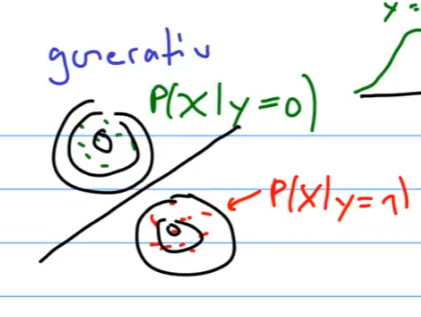 y =
generativ
P(X|y=0)
P(X|y=1)